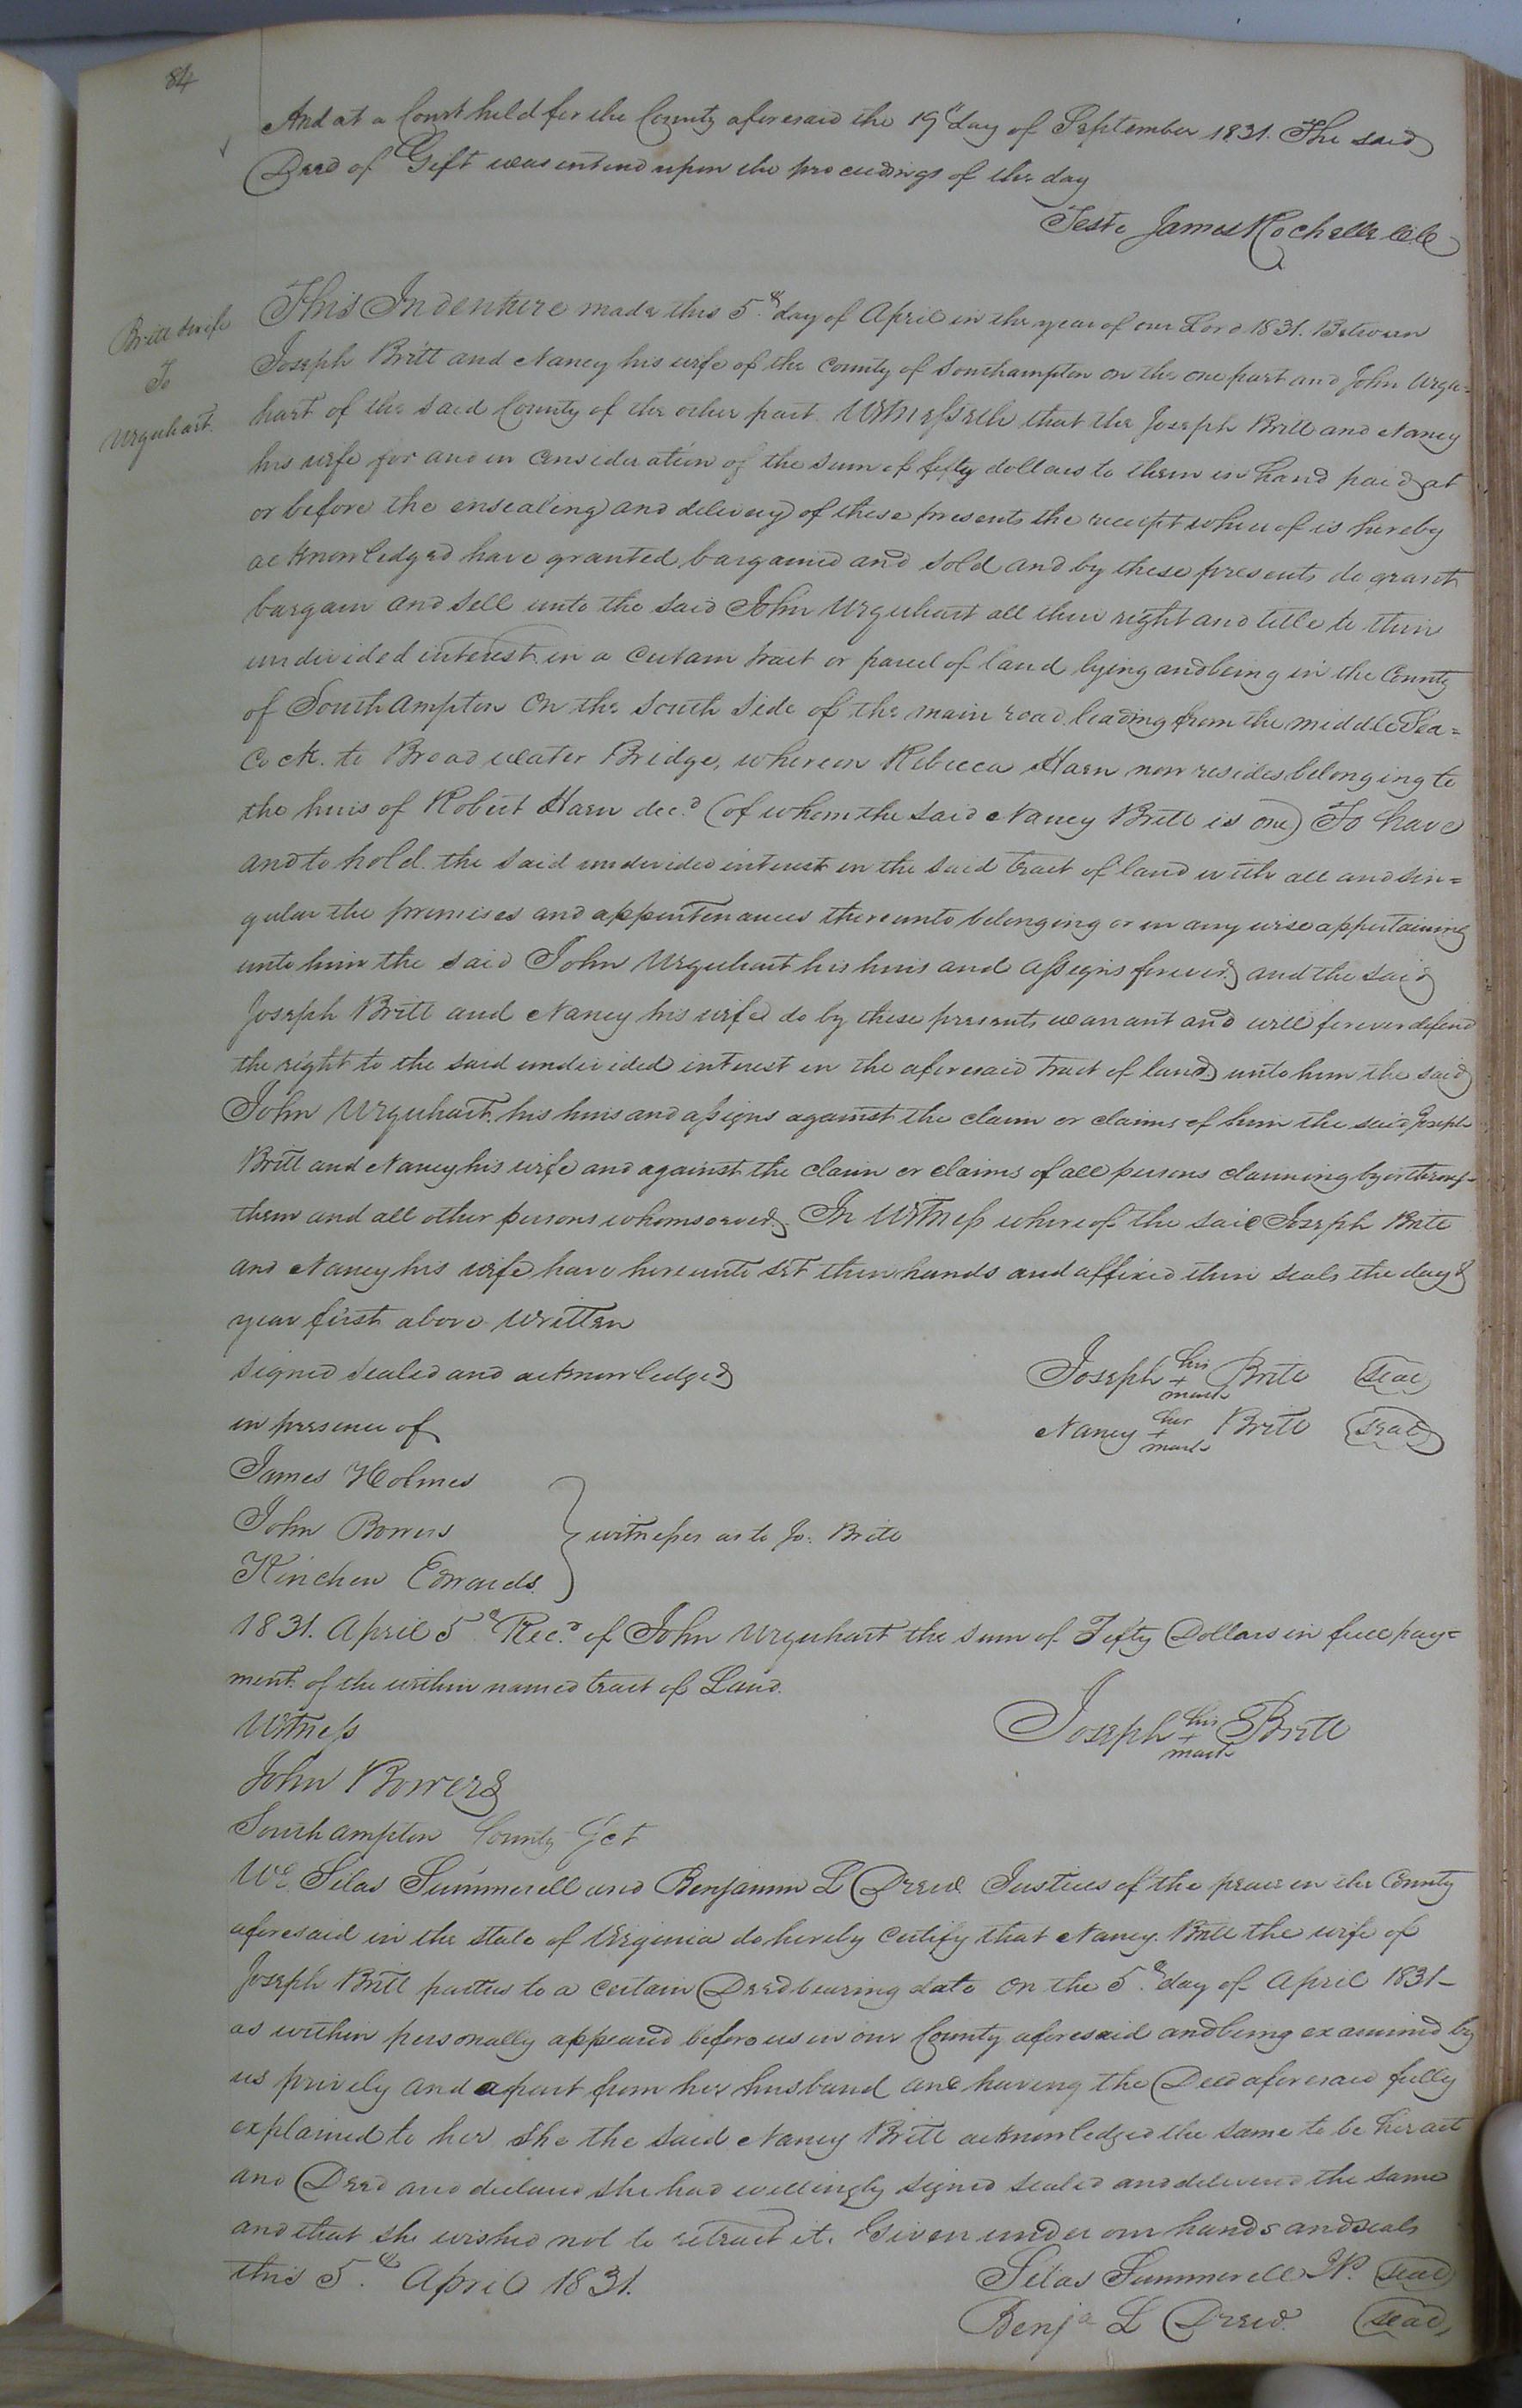 84
And at a Court held for the County aforesaid the 19th day of September 1831. The said
Deed of Gift was enterd upon the proceedings of the day
Teste James Rochelle CC
Britt & wife
To
Urquhart.
This Indenture made this 5th day of April in the year of our Lord 1831. Between
Joseph Britt and Nancy his wife of the County of Southampton on the one part and John Urqu=
hart of the said County of the other part. Witnesseth that the Joseph Britt and Nancy
his wife for and in Consideration of the sum of fifty dollars to them in hand paid at
or before the ensealing and delivery of these presents the receipt whereof is hereby
acknowledged have granted bargained and sold and by these presents do grant
bargain and sell unto the said John Urquhart all their right and title to their
undivided interest in a certain tract or parcel of land lying and being in the County
of Southampton On the south side of the main road leading from the middle Sea=
Cock. to Broad water Bridge, whereon Rebecca Harn now resides belonging to
the heirs of Robert Harn decd (of whom the said Nancy Britt is one) To have
and to hold the said undivided interest in the said tract of land with all and sin=
gular the premises and appurtenances thereunto belonging or in any wise appertaining
unto him the said John Urquhart his heirs and assigns forever, and the said
Joseph Britt and Nancy his wife do by these presents warrant and will forever defend
the right to the said undivided interest in the aforesaid tract of land unto him the said
John Urquhart. his heirs and assigns against the claim or claims of him the said Joseph
Britt and Nancy his wife and against the claim or claims of all persons claiming by or through
them and all other persons whomsoever. In Witness whereof the said Joseph Britt
and Nancy his wife have hereunto set their hands and affixed their seals the day &
year first above written
signed sealed and acknowledged
in presence of
Joseph his + mark Britt seal
Nancy her + mark Britt seal
James Holmes
John Bowers
Kinchen Edwards.
witnesses as to Jo. Britt
1831. April 5th Recd of John Urquhart the sum of Fifty Dollars in full pay=
ment of the within named tract of Land.
Witness
Joseph his + mark Britt
John Bowers
Southampton County Sct
We Silas Summerell and Benjamin L Drew Justices of the peace in the County
aforesaid in the state of Virginia do hereby certify that Nancy Britt the wife of
Joseph Britt parties to a certain Deed bearing date on the 5th day of April 1831_
as within personally appeared before us in our County aforesaid and being examined by
us privily and apart from her husband and having the Deed aforesaid fully
explained to her she the said Nancy Britt acknowledged the same to be her act
and Deed and declared she had willingly signed sealed and delivered the same
and that she wished not to retract it. Given under our hands and seals
this 5th April 1831.
Silas Summerell JP. seal
Benja L Drew. seal